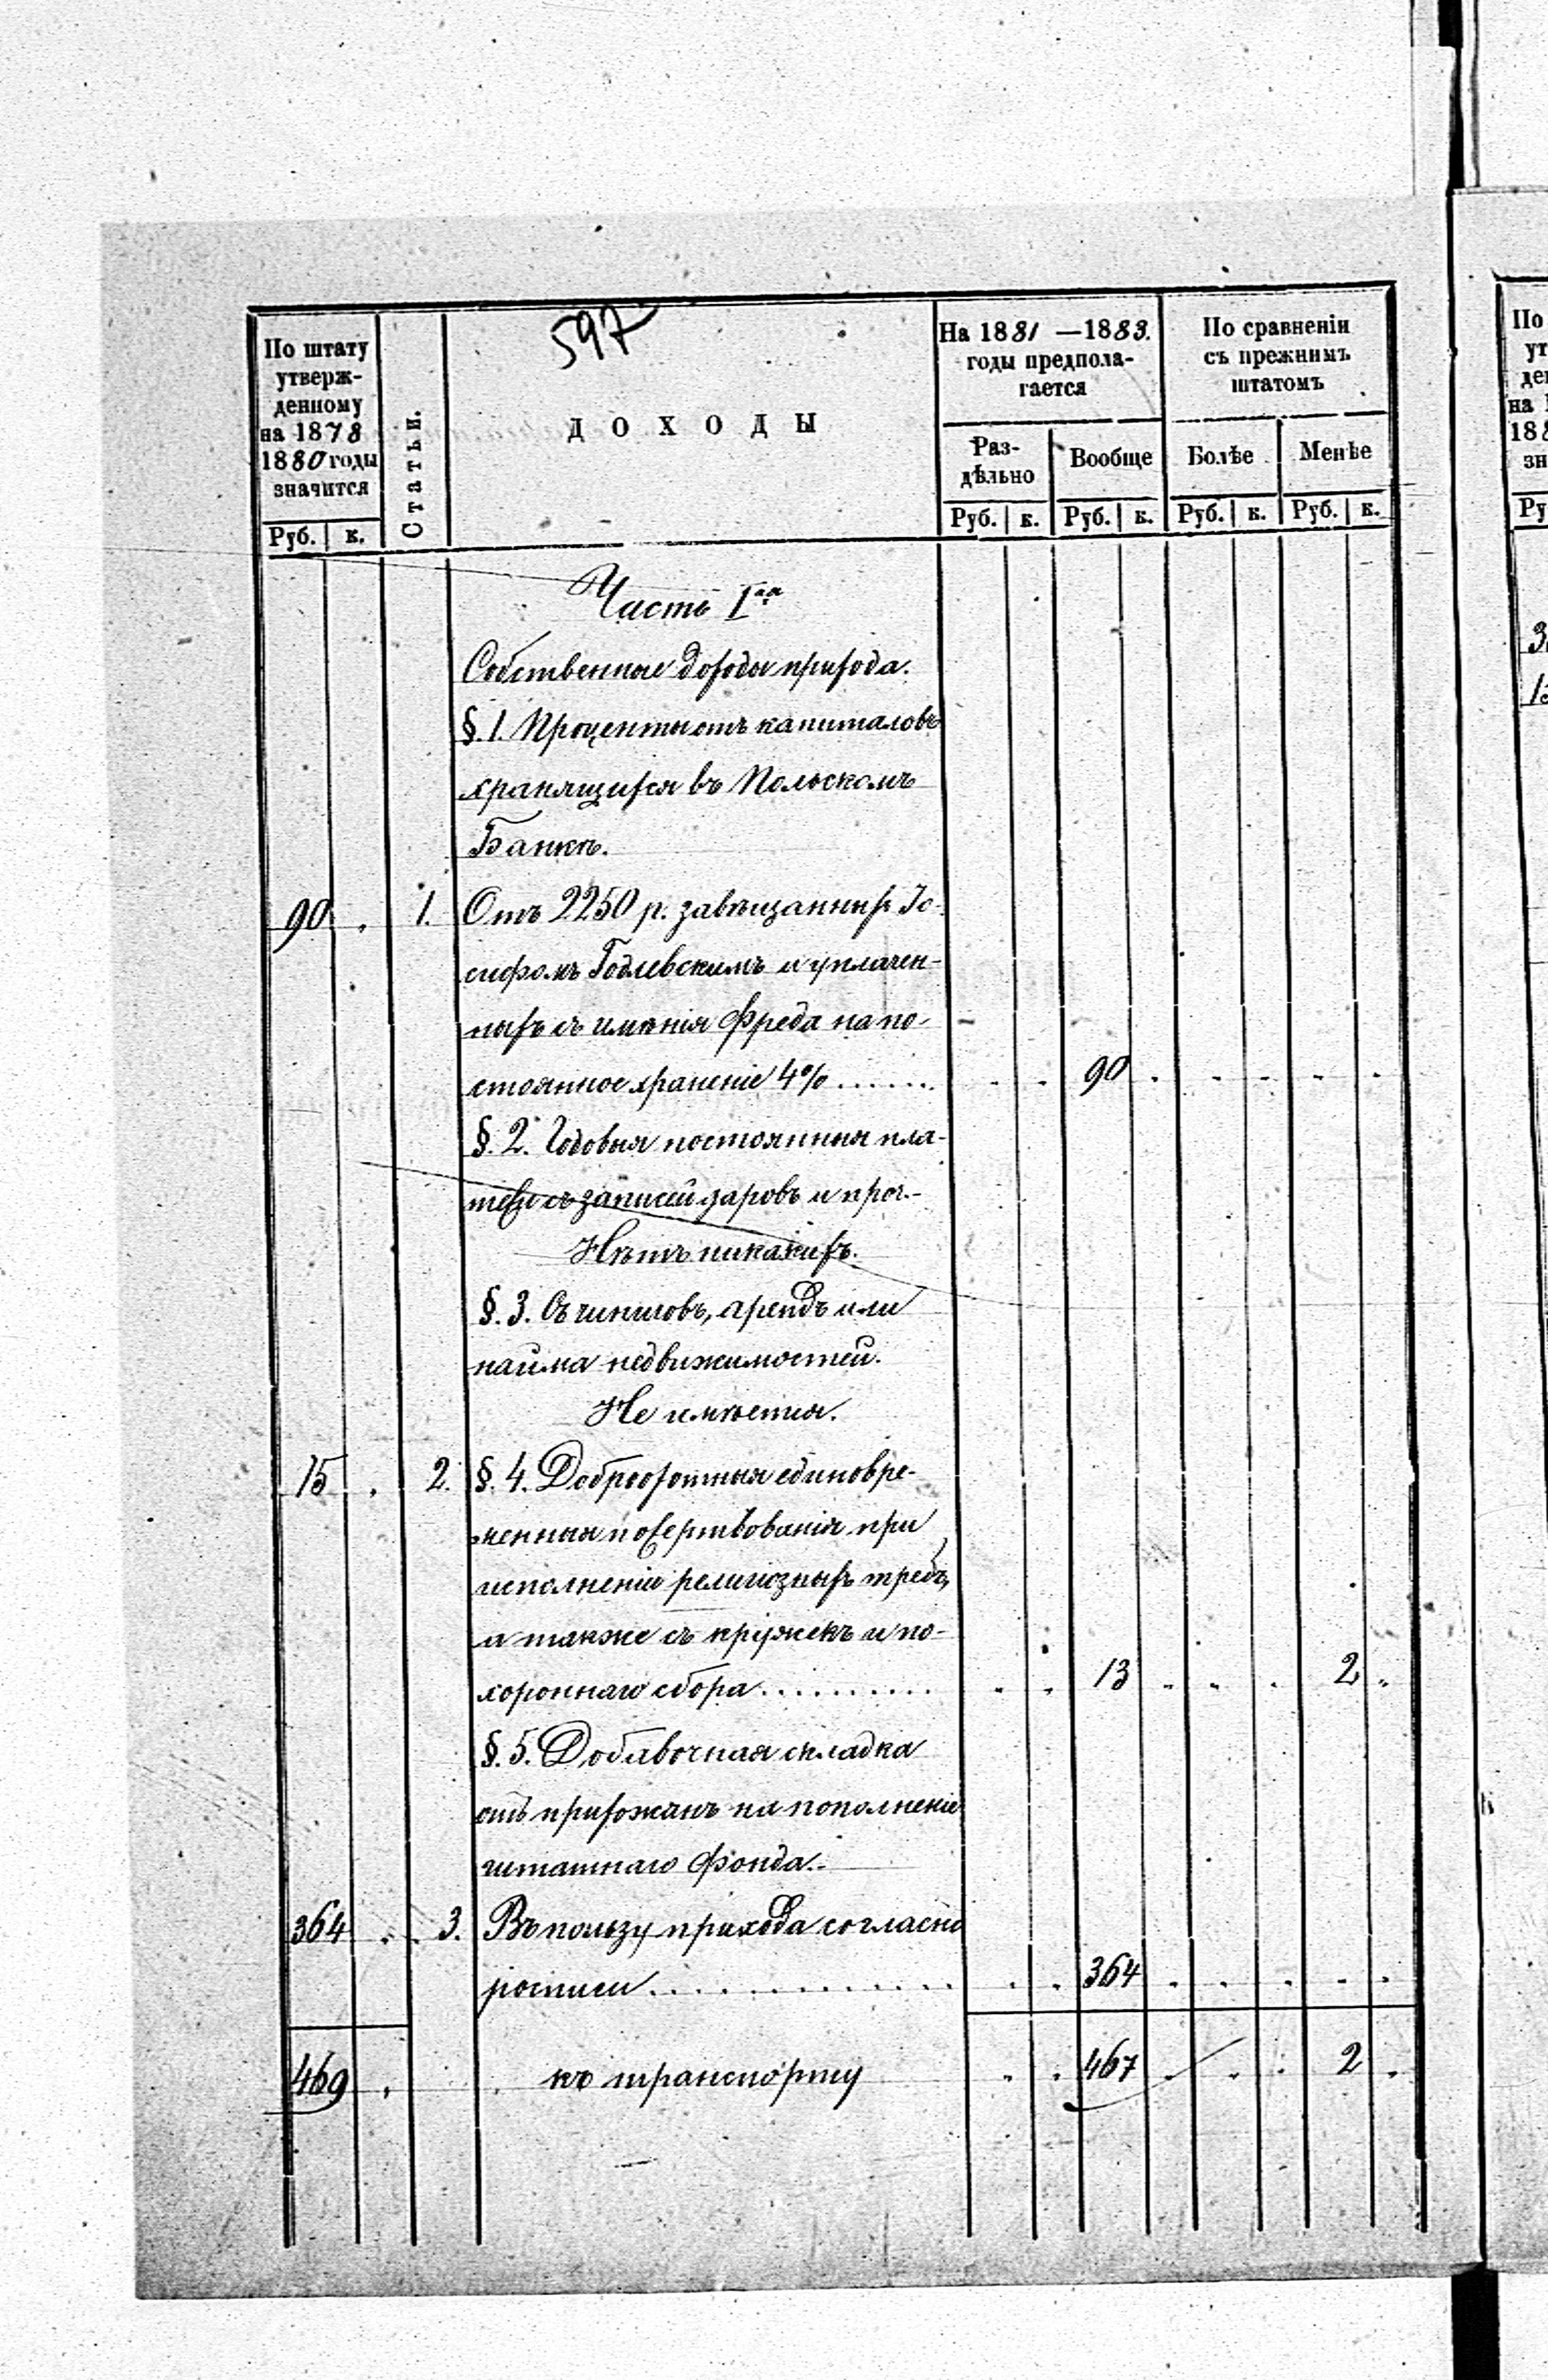 597
По штату
утверж-
денному
на 1878
1880 годы
значится
Руб. к.
Статьи.
ДОХОДЫ
На 1881 — 1883.
годы предпола-
гается
Раз-
дѣльно
Руб. к.
Вообще
Руб. к.
По сравненіи
съ прежнимъ
штатомъ
Болѣе
Руб. к.
Менѣе
Руб. к.
Часть Iая
Собственные доходы прихода.
§. 1. Проценты отъ капиталовъ
хранящихся въ Польскомъ
Банкѣ.
90 . 1. Отъ 2250 р. завѣщанныхъ Іо-
сифомъ Годлевскимъ и уплачен-
ныхъ съ имѣнія Фреда на по-
стоянное храненіе 4% ....... 90
§. 2. Годовыя постоянныя пла-
тежи съ записей даровъ и проч.-
Нѣтъ никакихъ.
§. 3. Съ чиншовъ, арендъ или
найма недвижимостей.
Не имѣется.
15 . 2. §. 4. Доброхотныя единовре-
менныя пожертвованія при
исполненіи религіозныхъ требъ,
а также съ кружекъ и по-
хороннаго сбора .......... 13 . . . 2 .
§. 5. Добавочная складка
отъ прихожанъ на пополненіе
штатнаго фонда.-
364 . 3. Въ пользу прихода согласно
росписи ............. 364
469 . къ транспорту 467 . . . 2 .
По
ут
ден
на 1
188
зн
Ру